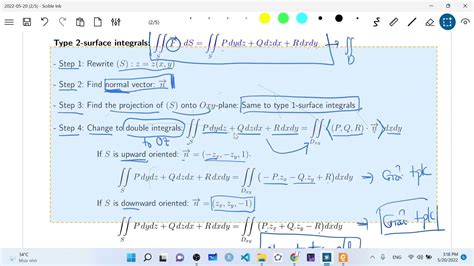 2022-05-20 (2/5) - Scible Ink
(2/5)
Type 2-surface integrals: ∬_S F⃗ dS = ∬_S P dydz + Q dzdx + R dxdy ∬_D
- Step 1: Rewrite (S) : z = z(x, y)
- Step 2: Find normal vector: n⃗
- Step 3: Find the projection of (S) onto Oxy-plane: Same to type 1-surface integrals
- Step 4: Change to double integrals: ∬_S P dydz + Q dzdx + R dxdy = ∬_{Dxy} (⟨P, Q, R⟩ · n⃗) dxdy
to Oz
If S is upward oriented: n⃗ = (-z_x, -z_y, 1).
∬_S P dydz + Q dzdx + R dxdy = ∬_{Dxy} (-P.z_x - Q.z_y + R) dxdy → Giải tpk
If S is downward oriented: n⃗ = (z_x, z_y, -1)
∬_S P dydz + Q dzdx + R dxdy = ∬_{Dxy} (P.z_x + Q.z_y - R) dxdy → Giải tpk
34°C
3:18 PM
5/20/2022